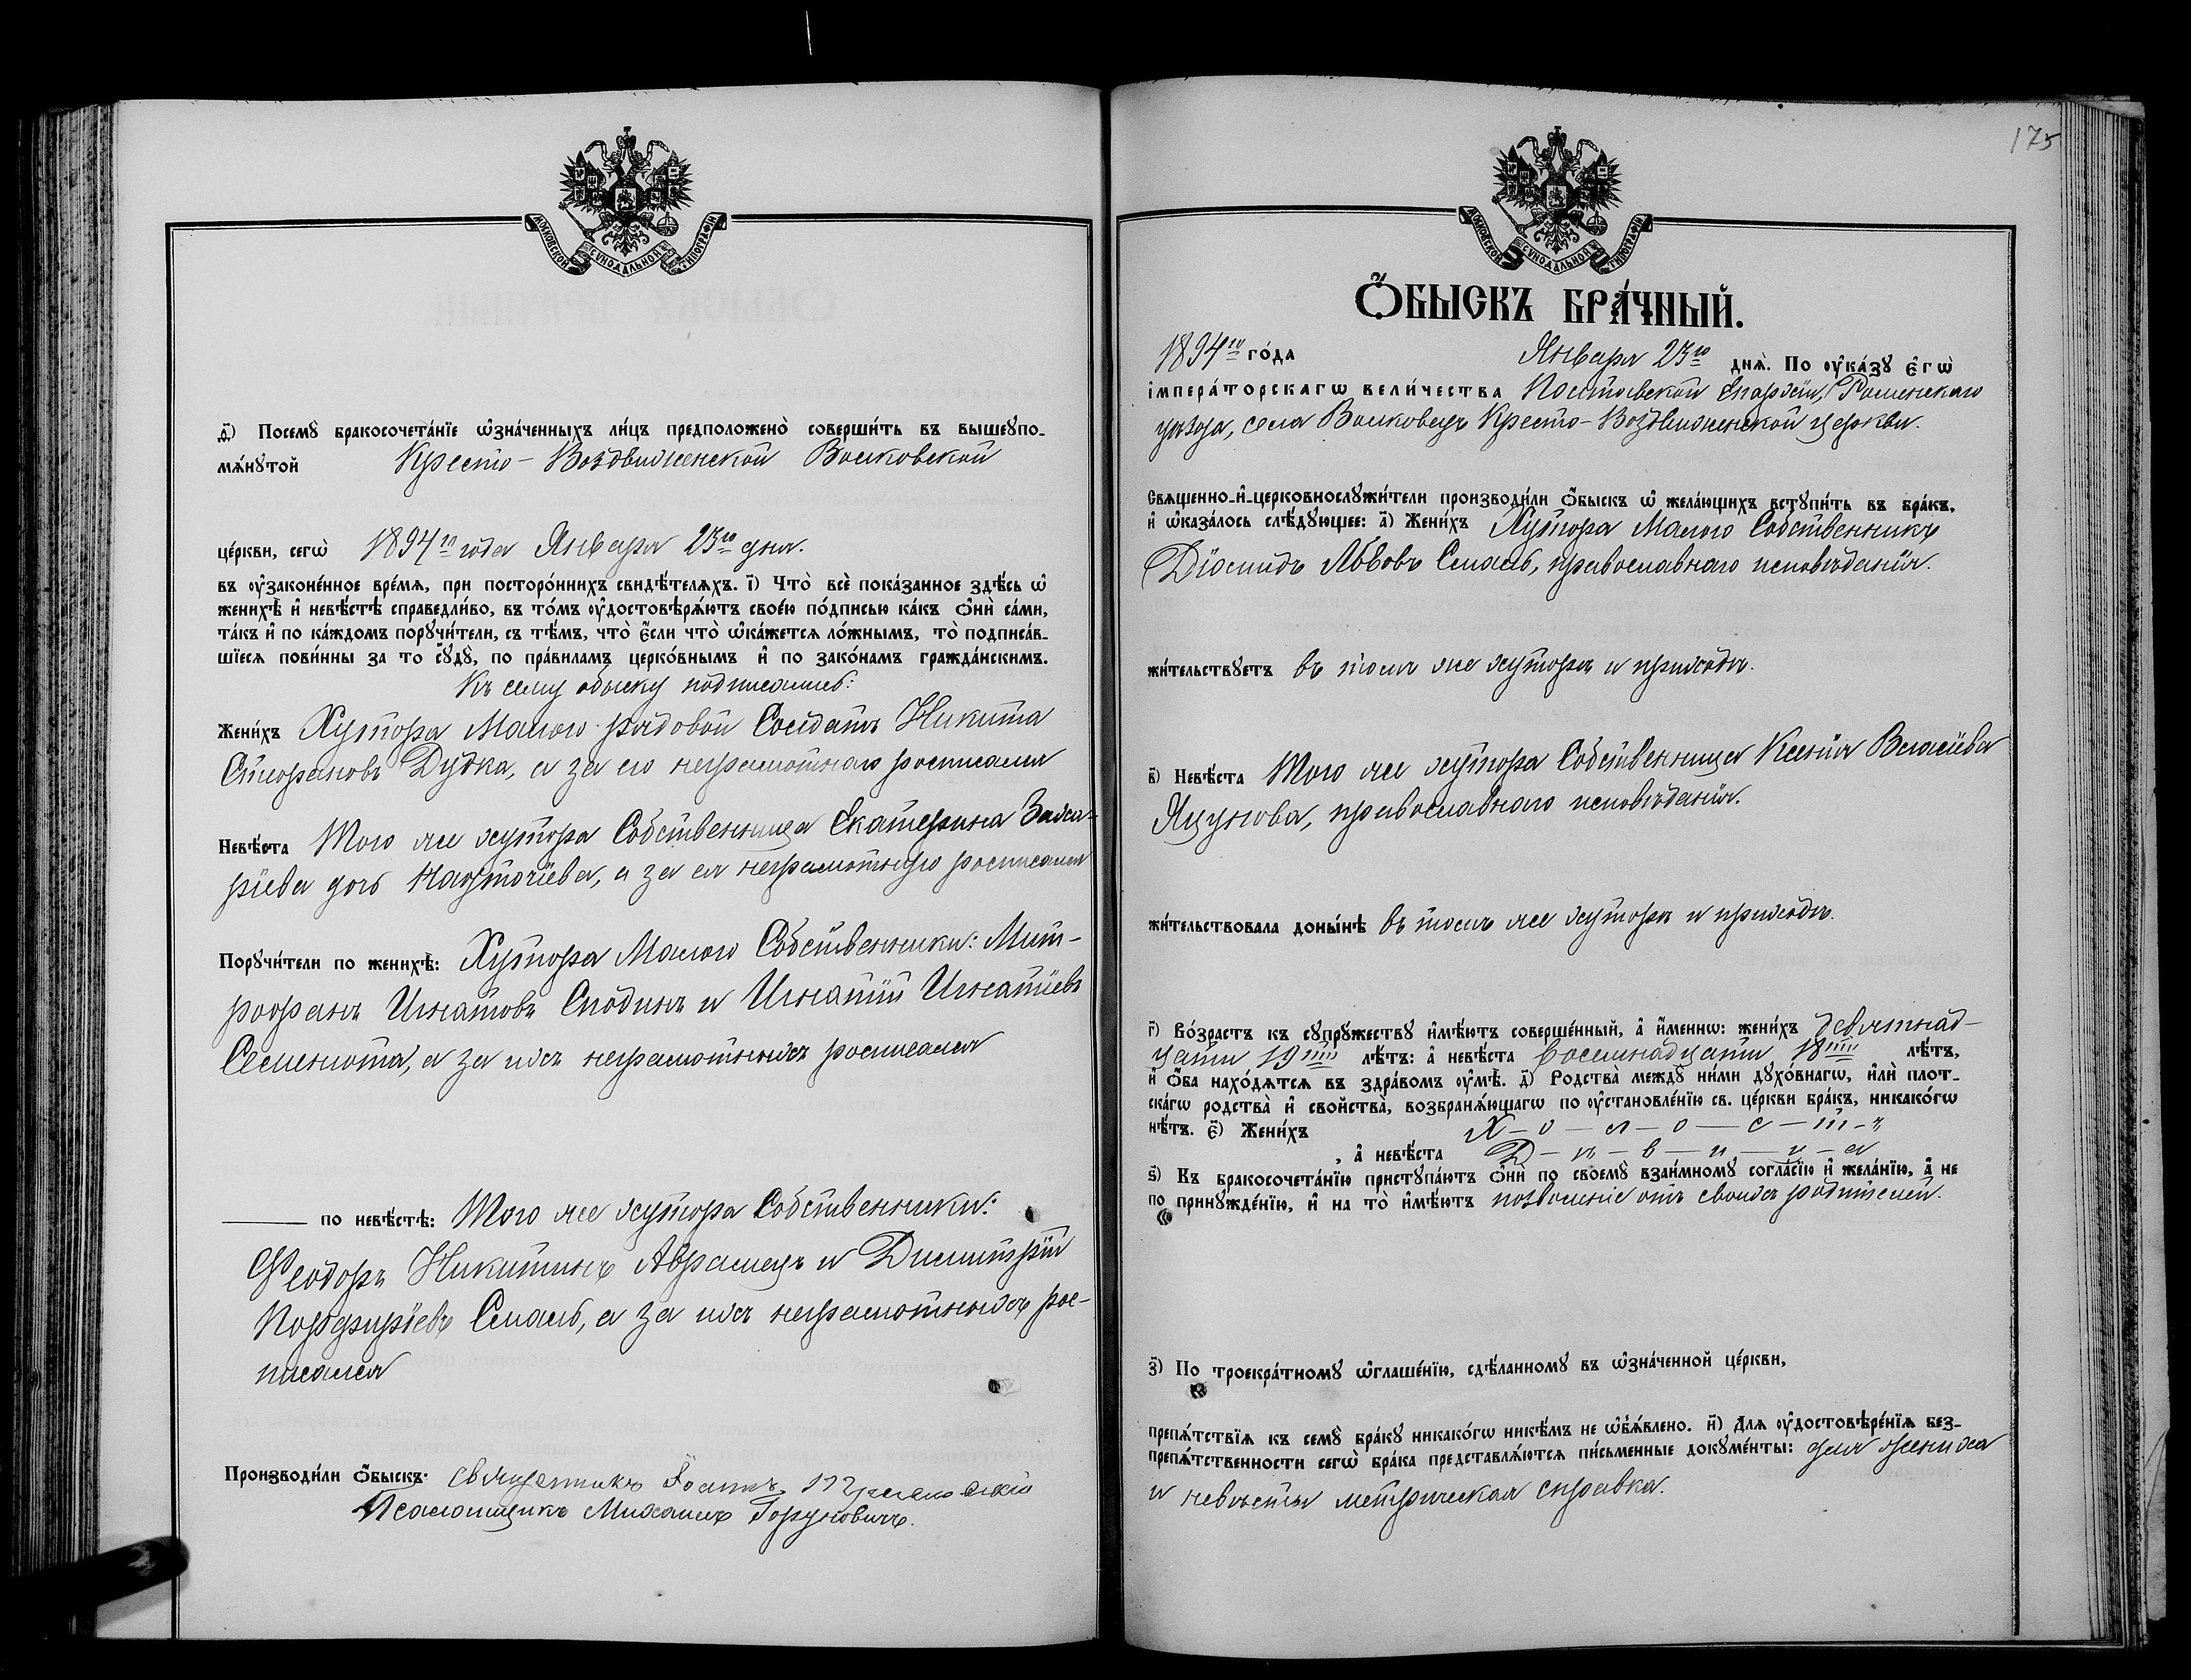 МОСКОВСКОЙ СѴНОДАЛЬНОЙ ТИПОГРАФІИ
д҃) Посемꙋ бракосочета́нїе ѡ҆зна́ченныхъ ли́цъ предположено̀ соверши́ть въ вышеꙋпо-
мѧ́нꙋтой Кресто-Воздвиженской Волковской
це́ркви, сегѡ̀ 1894го года Января 23го дня.
въ ᲂу҆законе́нное вре́мѧ, при посторо́ннихъ свидѣ́телѧхъ. і҃) Что̀ всѐ пока́занное здѣ́сь ѡ҆
женихѣ̀ и҆ невѣ́стѣ справедли́во, въ то́мъ ᲂу҆достовѣрѧ́ютъ свое́ю по́дписью ка́къ ѻ҆нѝ са́ми,
та́къ и҆ по ка́ждомъ порꙋчи́тели, съ тѣ́мъ, что̀ є҆́сли что̀ ѡ҆ка́жется ло́жнымъ, то̀ подписа́в-
шїеся пови́нны за то сꙋдꙋ̀, по пра́виламъ церко́внымъ и҆ по зако́намъ гражда́нскимъ.
Къ сему обыску подписались:
Жени́хъ Хутора Малого рядовой Солдатъ Никита
Стефановъ Дудка, а за его неграмотнаго росписался
Невѣ́ста Того же хутора Собственница Екатерина Заха-
ріева дочь, а за ея неграмотную росписался
Порꙋчи́тели по женихѣ̀: Хутора Малого Собственники: Мит-
рофанъ Игнатовъ и Игнатій Игнатіевъ
Семенюта, а за ихъ неграмотныхъ росписался
по невѣ́стѣ: Того же хутора Собственники:
Ѳеодоръ Никитинъ Аврамецъ и Димитрій
Порфиріевъ Смаль, а за ихъ неграмотныхъ рос-
писался
Производи́ли ѻ҆́быскъ: священникъ Іоаннъ
Псаломщикъ Михаилъ Горуновичъ.
175
МОСКОВСКОЙ СѴНОДАЛЬНОЙ ТИПОГРАФІИ
Ѻ҆БЫСКЪ БРА́ЧНЫЙ.
1894го го́да Января 23го днѧ̀. По ᲂу҆ка́зꙋ є҆гѡ̀
і҆мпера́торскагѡ вели́чества Полтавской Епархіи, Роменскаго
уѣзда, села Волковецъ Кресто-Воздвиженской церкви.
Свѧщенно-и҆-церковнослꙋжи́тели производи́ли ѻ҆́быскъ ѡ҆ жела́ющихъ встꙋпи́ть въ бра́къ,
и҆ ѡ҆каза́лось слѣ́дꙋющее: а҃) Жени́хъ Хутора Малого Собственникъ
Діомидъ Львовъ Смаль, православнаго исповѣданія.
жи́тельствꙋетъ въ томъ же хуторѣ и приходѣ.
в҃) Невѣ́ста Того же хутора Собственница Ксенія Власіева
Яцунова, православнаго исповѣданія.
жи́тельствовала доны́нѣ въ томъ же хуторѣ и приходѣ.
г҃) Во́зрастъ къ сꙋпрꙋжествꙋ и҆мѣ́ютъ соверше́нный, а҆ и҆́меннѡ: жени́хъ девятнад-
цати 19ти лѣ́тъ: а҆ невѣ́ста восемнадцати 18ти лѣ́тъ,
и҆ ѻ҆́ба нахо́дѧтсѧ въ здра́вомъ ᲂу҆мѣ̀. д҃) Родства̀ междꙋ̀ ни́ми дꙋхо́внагѡ, и҆лѝ плот-
ска́гѡ родства̀ и҆ свойства̀, возбранѧ́ющагѡ по ᲂу҆становле́нїю св. це́ркви бра́къ, никако́гѡ
нѣ́тъ. є҃) Жени́хъ Х-о-л-о-с-т-ъ
, а҆ невѣ́ста Д-ѣ-в-и-ц-а
ѕ҃) Къ бракосочета́нїю пристꙋпа́ютъ ѻ҆нѝ по своемꙋ̀ взаи́мномꙋ согла́сїю и҆ жела́нїю, а҆ не
по принꙋжде́нїю, и҆ на то̀ и҆мѣ́ютъ позволеніе отъ своихъ родителей.
з҃) По троекра́тномꙋ ѡ҆глаше́нїю, сдѣ́ланномꙋ въ ѡ҆зна́ченной це́ркви,
препѧ́тствїѧ къ семꙋ̀ бра́кꙋ никако́гѡ никѣ́мъ не ѡ҆б̾ѧ́влено. и҃) Длѧ ᲂу҆достовѣре́нїѧ без-
препѧ́тственности сегѡ̀ бра́ка представлѧ́ются пи́сьменные докꙋме́нты: для жениха
и невѣсты метрическая справка.